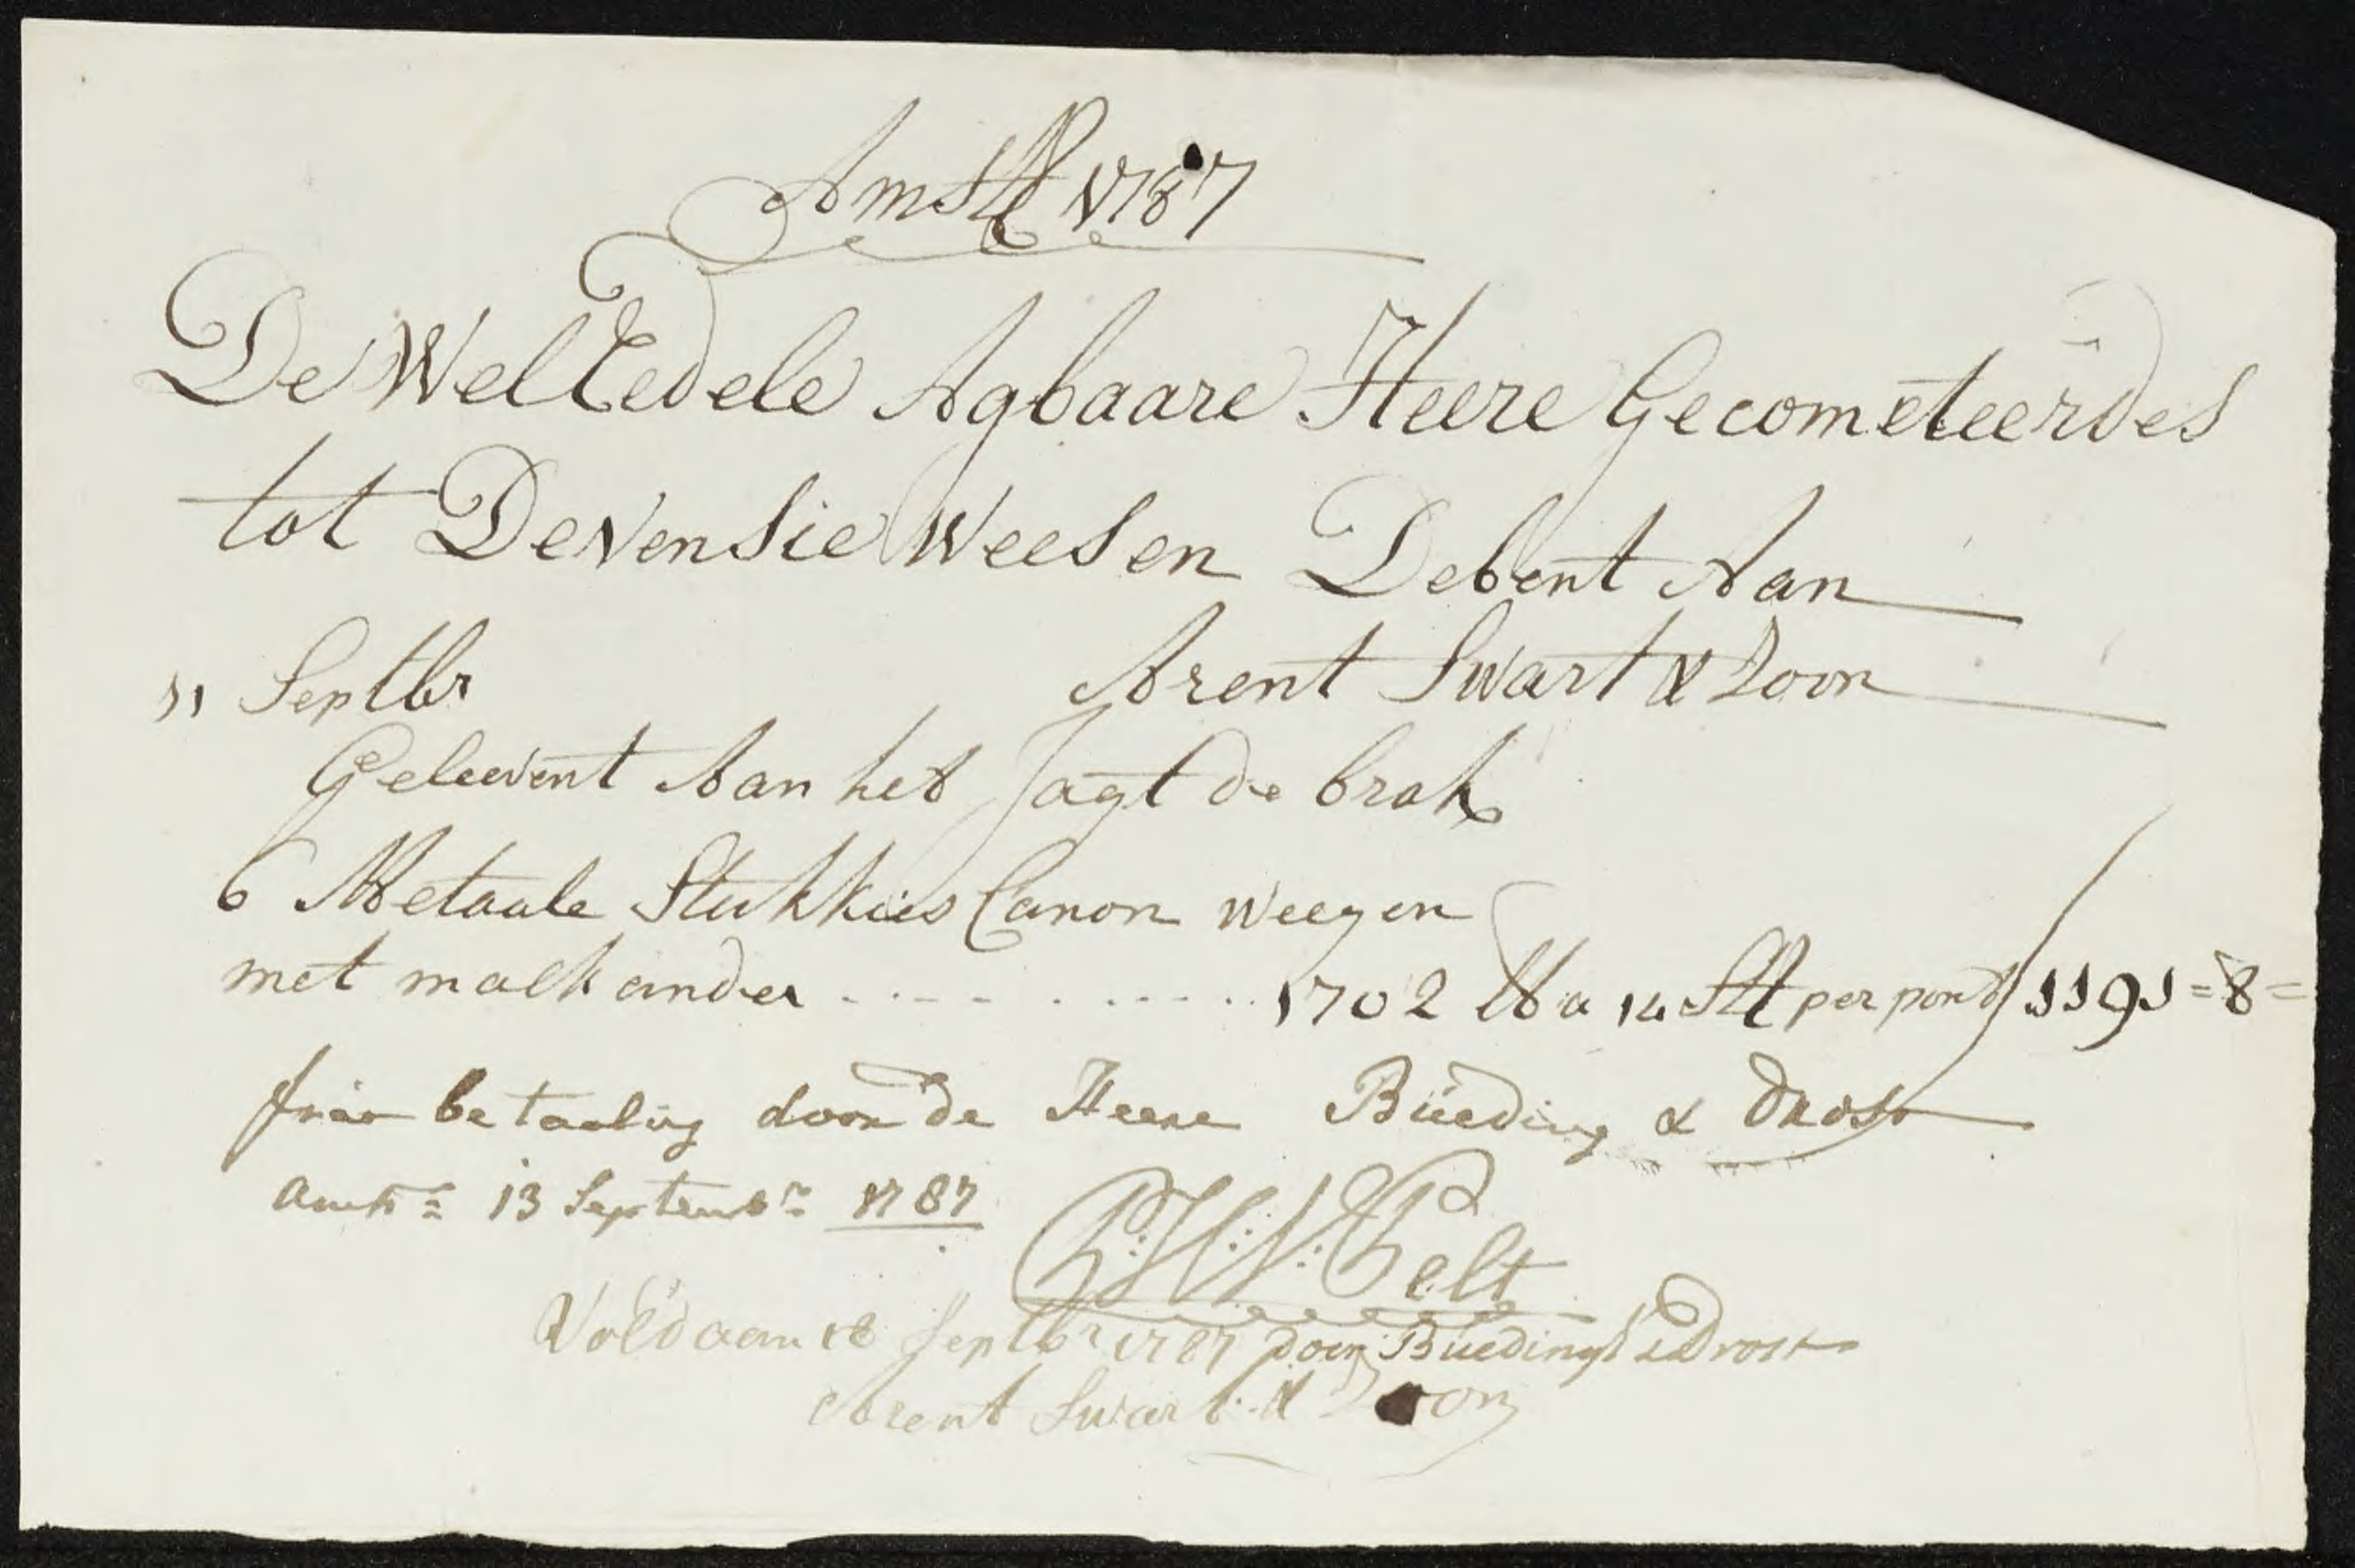 Amstd 1787
De Wel Eedele Agbaare Heere Gecometeerdes
tot Devensie Weesen Debent Aan
11 Septbr Arent Swart & Zoon
Geleevent Aan het Jagt de brak
6 Metaale Stukkies Canon weegen
met malkander 1702 lb a 14 St per pont f 1191=8=
fiar betaaling door de Heere Büeding & Drost
Amst= 13 Septembr= 1787
G:H:V: Pelt
Voldaan 18 Septbr 1787 door Buedingh & Drost
Arent Swart & Zoon